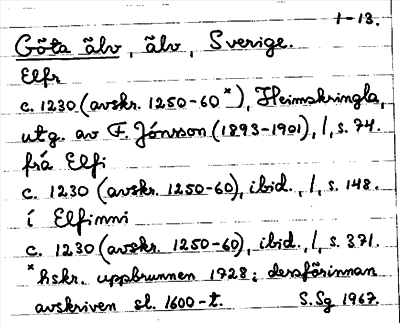 1-13.
Göta älv, älv, Sverige.
Elfr
c. 1230 (avskr. 1250-60*), Heimskringla,
utg. av F. Jónsson (1893-1901), 1, s. 74.
frá Elfi
c. 1230 (avskr. 1250-60), ibid., 1, s. 148.
í Elfinni
c. 1230 (avskr. 1250-60), ibid., 1, s. 371.
* hskr. uppbrunnen 1728; dessförinnan
avskriven sl. 1600-t. S.Sg 1967.